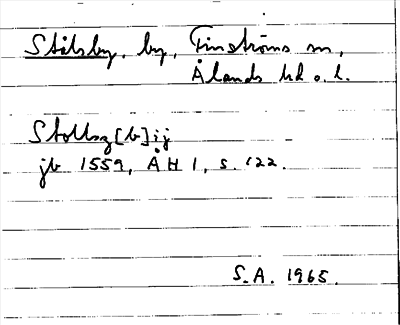 Stålsby, by, Finströms sn,
Ålands hd o. l.
Stollsz[b]ij
jb 1559, ÅH 1, s. 122.
S.A. 1965.